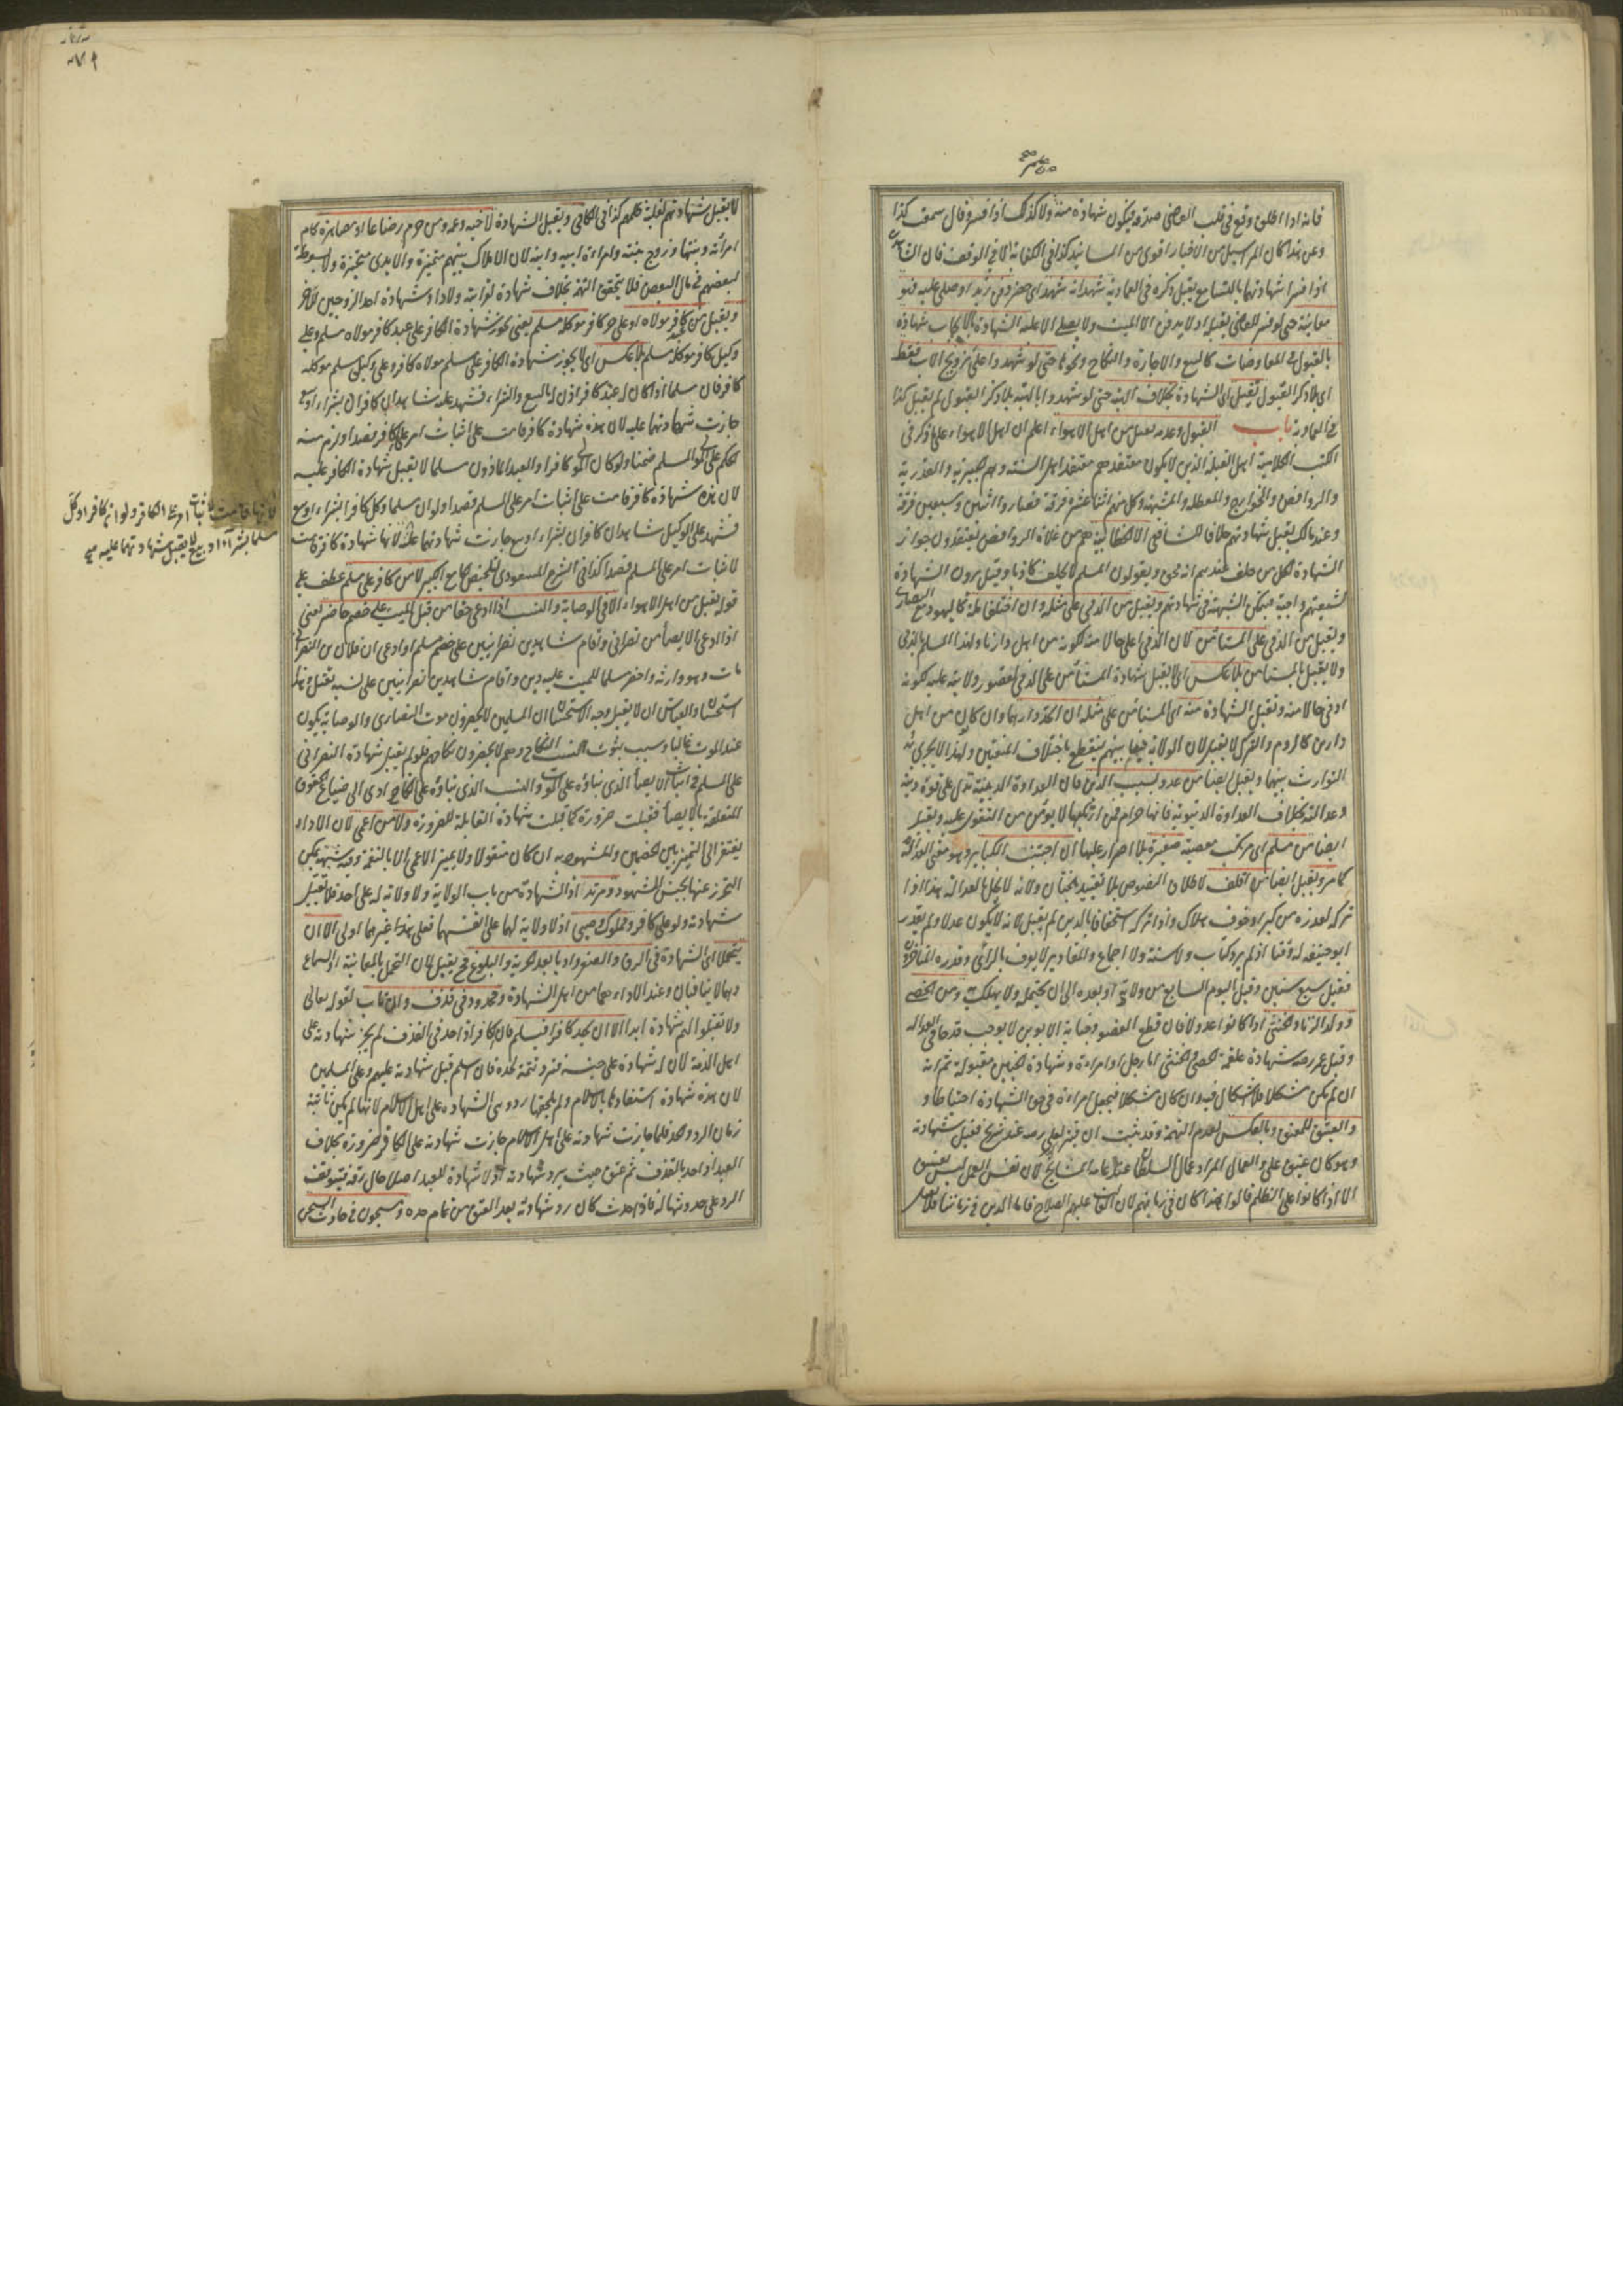 فانه اذا اطلق وقع في قلب القاضي صدقه فيكون شهادة منه ولا كذلك اذا فسر فقال سمعت كذا
وعن هذا كان المراسيل من الاخبار اقوى من المسانيد كذا في الكفاية الا في الوقف فان الشاهد
اذا فسرا شهادتهما بالتسامع يقبل ذكره في العمادية شهد انه شهد اي حضر دفن زيد او صلى عليه فهو
معاينة حتى لو فسر للقاضي يقبل اذ لا يدفن الا الميت ولا يصلى الا عليه الشهادة بالايجاب شهادة
بالقبول في المعاوضات كالبيع والاجارة والنكاح ونحوها حتى لو شهدوا على تزويج الاب فقط
اي بلا ذكر القبول تقبل اي الشهادة بخلاف الهبة حتى لو شهدوا بالهبة بلا ذكر القبول لم يقبل كذا
في العمادية باب القبول وعدمه يقبل من اهل الاهواء اعلم ان اهل الاهواء على ما ذكر في
الكتب الكلامية اهل القبلة الذين لا يكون معتقدهم معتقد اهل السنة وهم الجبرية والقدرية
والروافض والخوارج والمعطلة والمشبهة وكل منهم اثنا عشر فرقة فصاروا اثنين وسبعين فرقة
وعند مالك يقبل شهادتهم خلافا للشافعي الا الخطابية هم من غلاة الروافض يعتقدون جواز
الشهادة لكل من حلف عندهم انه محق ويقولون المسلم لا يحلف كاذبا وقيل يرون الشهادة
لشيعتهم واجبة فيمكن الشبهة في شهادتهم ويقبل من الذمي على مثله وان اختلفا ملة كاليهود مع النصارى
ويقبل من الذمي على المستأمن لان الذمي اعلى حالا منه لكونه من اهل دارنا ولهذا المسلم بالذمي
ولا يقبل بالمستأمن بلا عكس اي لا يقبل شهادة المستأمن على الذمي لقصور ولايته عليه لكونه
ادنى حالا منه وتقبل الشهادة منه اي المستأمن على مثله ان اتحد دارهما وان كان من اهل
دارين كالروم والترك لا يقبل لان الولاية فيما بينهم ينقطع باختلاف المنعتين ولهذا لا يجري
التوارث بينهما ويقبل ايضا من عدو بسبب الدين فان العداوة الدينية تدل على قوة دينه
وعدالته بخلاف العداوة الدنيوية فانها حرام فمن ارتكبها لا يؤمن من التقول عليه ويقبل
ايضا من مسلم اي مرتكب معصية صغيرة بلا اصرار عليها ان اجتنب الكبائر وهو معنى العدالة
كما مر ويقبل ايضا من اقلف لاطلاق النصوص بلا تقييد بالختان ولانه لا يخل بالعدالة هذا اذا
تركه لعذر من كبر او خوف هلاك واذا تركه استخفافا بالدين لم يقبل لانه لا يكون عدلا ولم يقدر
ابو حنيفة له وقتا اذ لم يرد كتاب ولا سنة ولا اجماع والمقادير لا يعرف بالرأي وقدره المتأخرون
فقيل سبع سنين وقيل اليوم السابع من ولادته او بعده الى ان يحتمله ولا يهلك به ومن الخصي
وولد الزنا والخنثى اذا كانوا عدولا فان قطع العضو وجناية الابوين لا يوجب قدحا في العدالة
وقبل عمر رضه شهادة علقمة الخصي والخنثى اما رجل او امراءة وشهادة الجنسين مقبولة ثم انه
ان لم يكن مشكلا فلا اشكال فيه وان كان مشكلا فيجعل امراءة في حق الشهادة احتياطا و
والعتيق للمعتق وبالعكس لعدم التهمة وقد ثبت ان قنبر لعلي رضه عند شريح فقبل شهادته
وهو كان عتيق علي والعمال المراد عمال السلطان عند عامة المشايخ لان نفس العمل ليس بفسق
الا اذا كانوا على الظلم قالوا هذا كان في زمانهم لان الغالب عليهم الصلاح فاما الذين في زماننا فلا
لا يقبل شهادتهم لغلبة ظلمهم كذا في الكافي ويقبل الشهادة لاخيه وعمه ومن حرم رضاعا او مصاهرة كام
امرأته وبنتها وزوج بنته وامراءة ابيه وابنه لان الاملاك بينهم متميزة والايدي متحيزة ولا بسوطة
لبعضهم في مال البعض فلا يتحقق التهمة بخلاف شهادة لقرابته ولادا وشهادة احد الزوجين للآخر
ويقبل من كافر على عبد كافر مولاه او على حر كافر موكله مسلم يعني يجوز شهادة الكافر على عبد كافر مولاه مسلم وعلى
وكيل كافر موكله مسلم بلا عكس اي لا يجوز شهادة الكافر على مسلم مولاه كافر وعلى وكيل مسلم موكله
كافر فان مسلما اذا كان له عبد كافر اذن له بالبيع والشراء فشهد عليه شاهدان كافران بشراء او بيع
جازت شهادتهما عليه لان هذه شهادة كافر قامت على اثبات امر على الكافر قصدا ولزم منه
الحكم على المولى المسلم ضمنا ولو كان المولى كافرا والعبد الماذون مسلما لا يقبل شهادة الكافر عليه
لان هذه شهادة كافر قامت على اثبات امر على المسلم قصدا ولو ان مسلما وكل كافرا بشراء او بيع
فشهد على الوكيل شاهدان كافران بشراء او بيع جازت شهادتهما عليه لانها شهادة كافر قامت
لاثبات امر على المسلم قصدا كذا في الشرح المسعودي لتلخيص الجامع الكبير لا من كافر على مسلم عطف على
قوله يقبل من اهل الاهواء الا في الوصاية والنسب اذا ادعى حقا من قبل الميت على خصم حاضر يعني
اذا ادعى الايصاء من نصراني واقام شاهدين نصرانيين على خصم مسلم او ادعى ان فلان بن فلان النصراني
مات وهو وارثه واحضر مسلما للميت عليه دين واقام شاهدين نصرانيين على نسبه تقبل
استحسانا والقياس ان لا يقبل وجه الاستحسان ان المسلمين لا يحضرون موت النصارى والوصاية يكون
عند الموت غالبا وسبب ثبوت النسب النكاح وهم لا يحضرون نكاحهم فلو لم يقبل شهادة النصراني
على المسلم في اثبات الايصاء الذي بناؤه على الموت والنسب الذي بناؤه على النكاح ادى الى ضياع الحقوق
المتعلقة بالايصاء فقبلت ضرورة كما قبلت شهادة القابلة للضرورة ولا من اعمى لان الاداء
يفتقر الى التمييز بين الخصمين والمشهود به ان كان منقولا ولا يميز الاعمى الا بالنغمة وفيه شبهة يمكن
التحرز عنها بجنس الشهود ومرتد اذ الشهادة من باب الولاية ولا ولاية له على احد فلا تقبل
شهادته ولو على كافر ومملوك وصبي اذ لا ولاية لهما على انفسهما فعلى غيرهما اولى الا ان
يتحملا اي الشهادة في الرق والصغر واديا بعد الحرية والبلوغ فح يقبل لان التحمل بالمعاينة او السماع
وهما لا ينافيان وعند الاداء هما من اهل الشهادة ومحدود في قذف وان تاب لقوله تعالى
ولا تقبلوا لهم شهادة ابدا الا ان يحد كافرا فيسلم فان الكافر اذا حد في القذف لم يجز شهادته على
اهل الذمة لان له شهادة على جنسه فترد تتمة لحده فان اسلم قبل شهادته عليهم وعلى المسلمين
لان هذه شهادة استفادها بالاسلام ولم يلحقها رد وهي الشهادة على اهل الاسلام لانها لم يكن ثابتة
زمان الرد والحد فلما جازت شهادته على اهل الاسلام جازت شهادته على الكافر ضرورة بخلاف
العبد اذا حد بالقذف ثم عتق حيث يرد شهادته اذ لا شهادة للعبد اصلا حال رقه فيتوقف
الرد على حدوثها له فاذا حدث كان رد شهادته بعد العتق من تمام حده ومسجون في حادث السجن
لانها قامت لاثبات امر على الكافر ولو انه كافر او كل
مسلما بشراء او بيع لا يقبل شهادتهما عليه